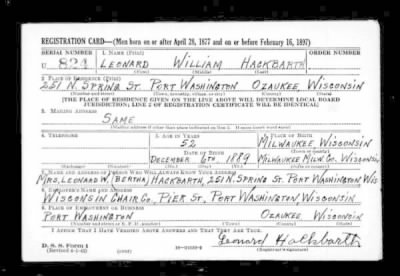 REGISTRATION CARD—(Men born on or after April 28, 1877 and on or before February 16, 1897)
SERIAL NUMBER 1. NAME (Print) ORDER NUMBER
U 824 LEONARD WILLIAM HACKBARTH
(First) (Middle) (Last)
2. PLACE OF RESIDENCE (Print)
251 N. SPRING ST. PORT WASHINGTON OZAUKEE, WISCONSIN
(Number and street) (Town, township, village, or city) (County) (State)
[THE PLACE OF RESIDENCE GIVEN ON THE LINE ABOVE WILL DETERMINE LOCAL BOARD
JURISDICTION; LINE 2 OF REGISTRATION CERTIFICATE WILL BE IDENTICAL]
3. MAILING ADDRESS
SAME
[Mailing address if other than place indicated on line 2. If same insert word same]
4. TELEPHONE 5. AGE IN YEARS 6. PLACE OF BIRTH
52 MILWAUKEE, WISCONSIN
DATE OF BIRTH (Town or county)
DECEMBER 6TH 1889 MILWAUKEE MILW. CO. WISCONSIN
(Exchange) (Number) (Mo.) (Day) (Yr.) (State or country)
7. NAME AND ADDRESS OF PERSON WHO WILL ALWAYS KNOW YOUR ADDRESS
MRS. LEONARD W. (BERTHA) HACKBARTH, 251 N. SPRING ST. PORT WASHINGTON WIS
8. EMPLOYER'S NAME AND ADDRESS
WISCONSIN CHAIR CO. PIER ST. PORT WASHINGTON WISCONSIN
9. PLACE OF EMPLOYMENT OR BUSINESS
PORT WASHINGTON OZAUKEE, WISCONSIN
(Number and street or R. F. D. number) (Town) (County) (State)
I AFFIRM THAT I HAVE VERIFIED ABOVE ANSWERS AND THAT THEY ARE TRUE.
D. S. S. Form 1 Leonard Hackbarth
(over) (Registrant's signature)